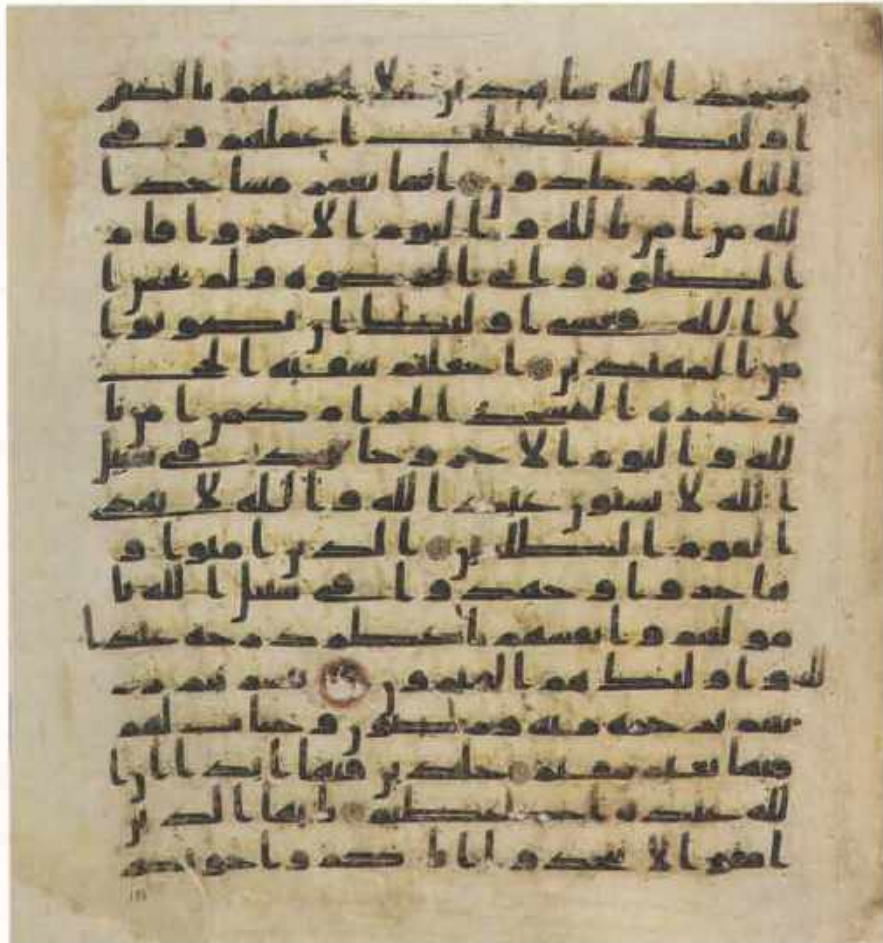 مسجد الله شاهدين علا انفسهم بالكفر
اولئك حبطت اعملهم وفي
النار هم خلدون انما يعمر مساجد ا
لله من امن بالله واليوم الاخر واقام
الصلوة واتى الزكوة ولم يخش ا
لا الله فعسى اولئك ان يكونوا
من المهتدين اجعلتم سقية الحج
وعمرة المسجد الحرام كمن امن با
لله واليوم الاخر وجاهد في سبيل
الله لا يستون عند الله والله لا يهدي
القوم الظلمين الذين امنوا و
هاجروا وجهدوا في سبيل الله با
مولهم وانفسهم اعظم درجة عند ا
لله واولئك هم الفيزون يبشرهم ر
بهم برحمة منه ورضون وجنات لهم
فيها نعيم مقيم خلدين فيها ابدا ان ا
لله عنده اجر عظيم يايها الذين
امنوا لا تتخذوا اباكم واخونكم